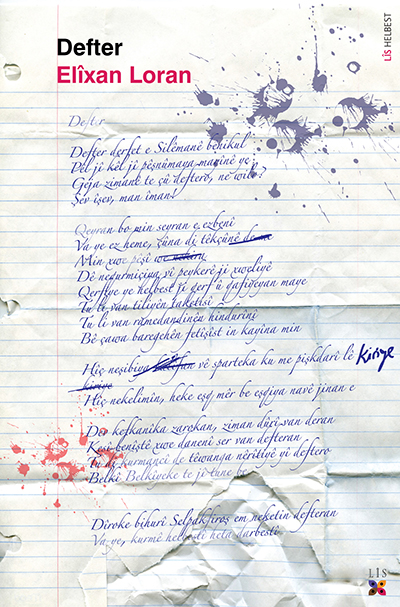 Defter
Elîxan Loran
LîS HELBEST
Defter
Defter derfet e Silêmanê behikul
Pel jî kêl ji pêşnûmaya mayinê ye
Geja zimanê te çû deftero, ne wilo?
Şev îşev, man îman!
Qeyran bo min seyran e ezbenî
Va ye ez heme, çûna di têkçûnê de me
Min xwe pêşî we nekiru
Dê nequrmiçiya vî peykerê ji xweliyê
Qerfiye ye helbest ji qerf û qafiyeyan maye
Tu li van tiliyên taketîsî
Tu li van ramedandinên hindurînî
Bê çawa baregehên fetîşîst in kayîna min
Hiç nesîbiya vê sparteka ku me pişkdarî lê kiriye
kiriye
Hiç nekelimîn, heke esq mêr be esqiya navê jinan e
Der kefkanîka zarokan, ziman dûrî van deran
Kesî beniştê xwe danenî ser van defteran
Tu di kurmancî de têwanga nêrîtiyê yî deftero
Belkî Belkîyeke te jî tune be
Dîroke bihurî Selpakfiroş em neketin defteran
Va ye, kurmê helbestî heta darbestî
LîS